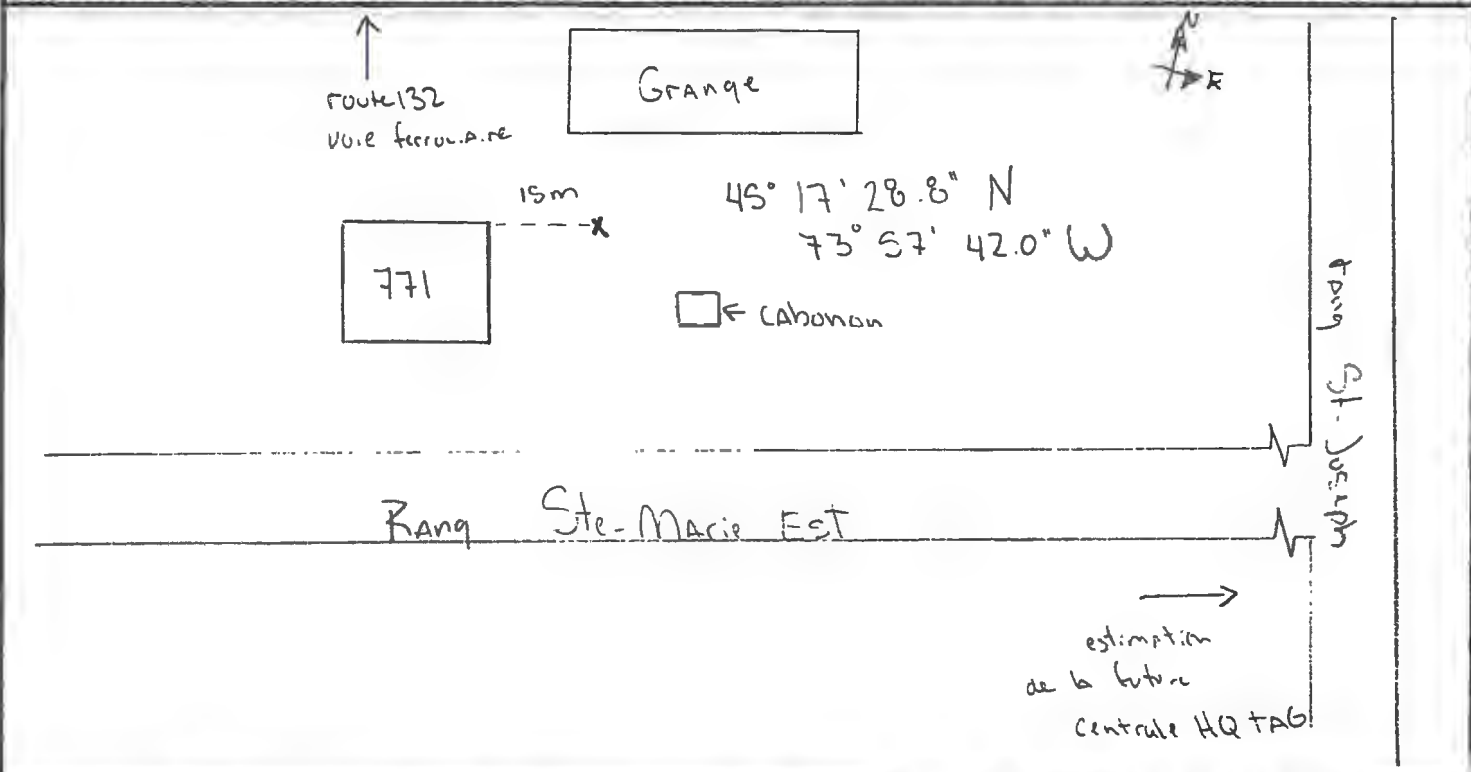 N
E
route 132
voie ferroviaire
Grange
15m
x
45° 17' 28.8" N
73° 57' 42.0" W
771
cabanon
rang St-Joseph
Rang Ste-Marie EST
estimation
de la future
centrale HQ TAG